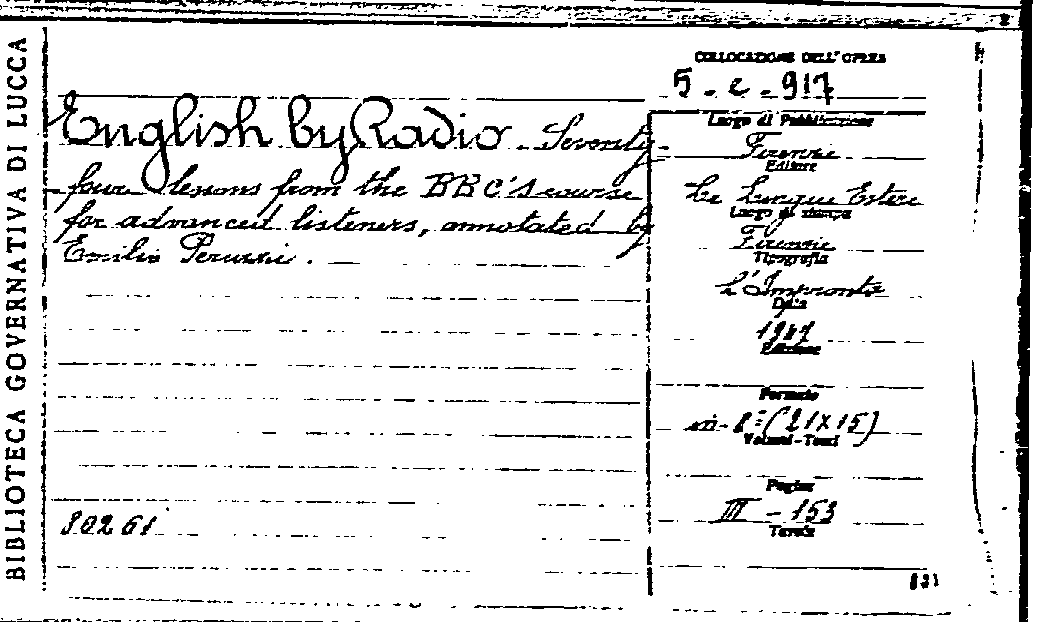 BIBLIOTECA GOVERNATIVA DI LUCCA
COLLOCAZIONE DELL'OPERA
5 - c - 917
English by Radio - Seventy-
four lessons from the BBC's course
for advanced listeners, annotated by
Emilio Peruzzi.
30261
Luogo di Pubblicazione
Firenze
Editore
Le Lingue Estere
Luogo di stampa
Firenze
Tipografia
L'Impronta
Data
1947
Edizione
Formato
in-8° (21x15)
Volumi-Tomi
Pagine
III - 153
Tavole